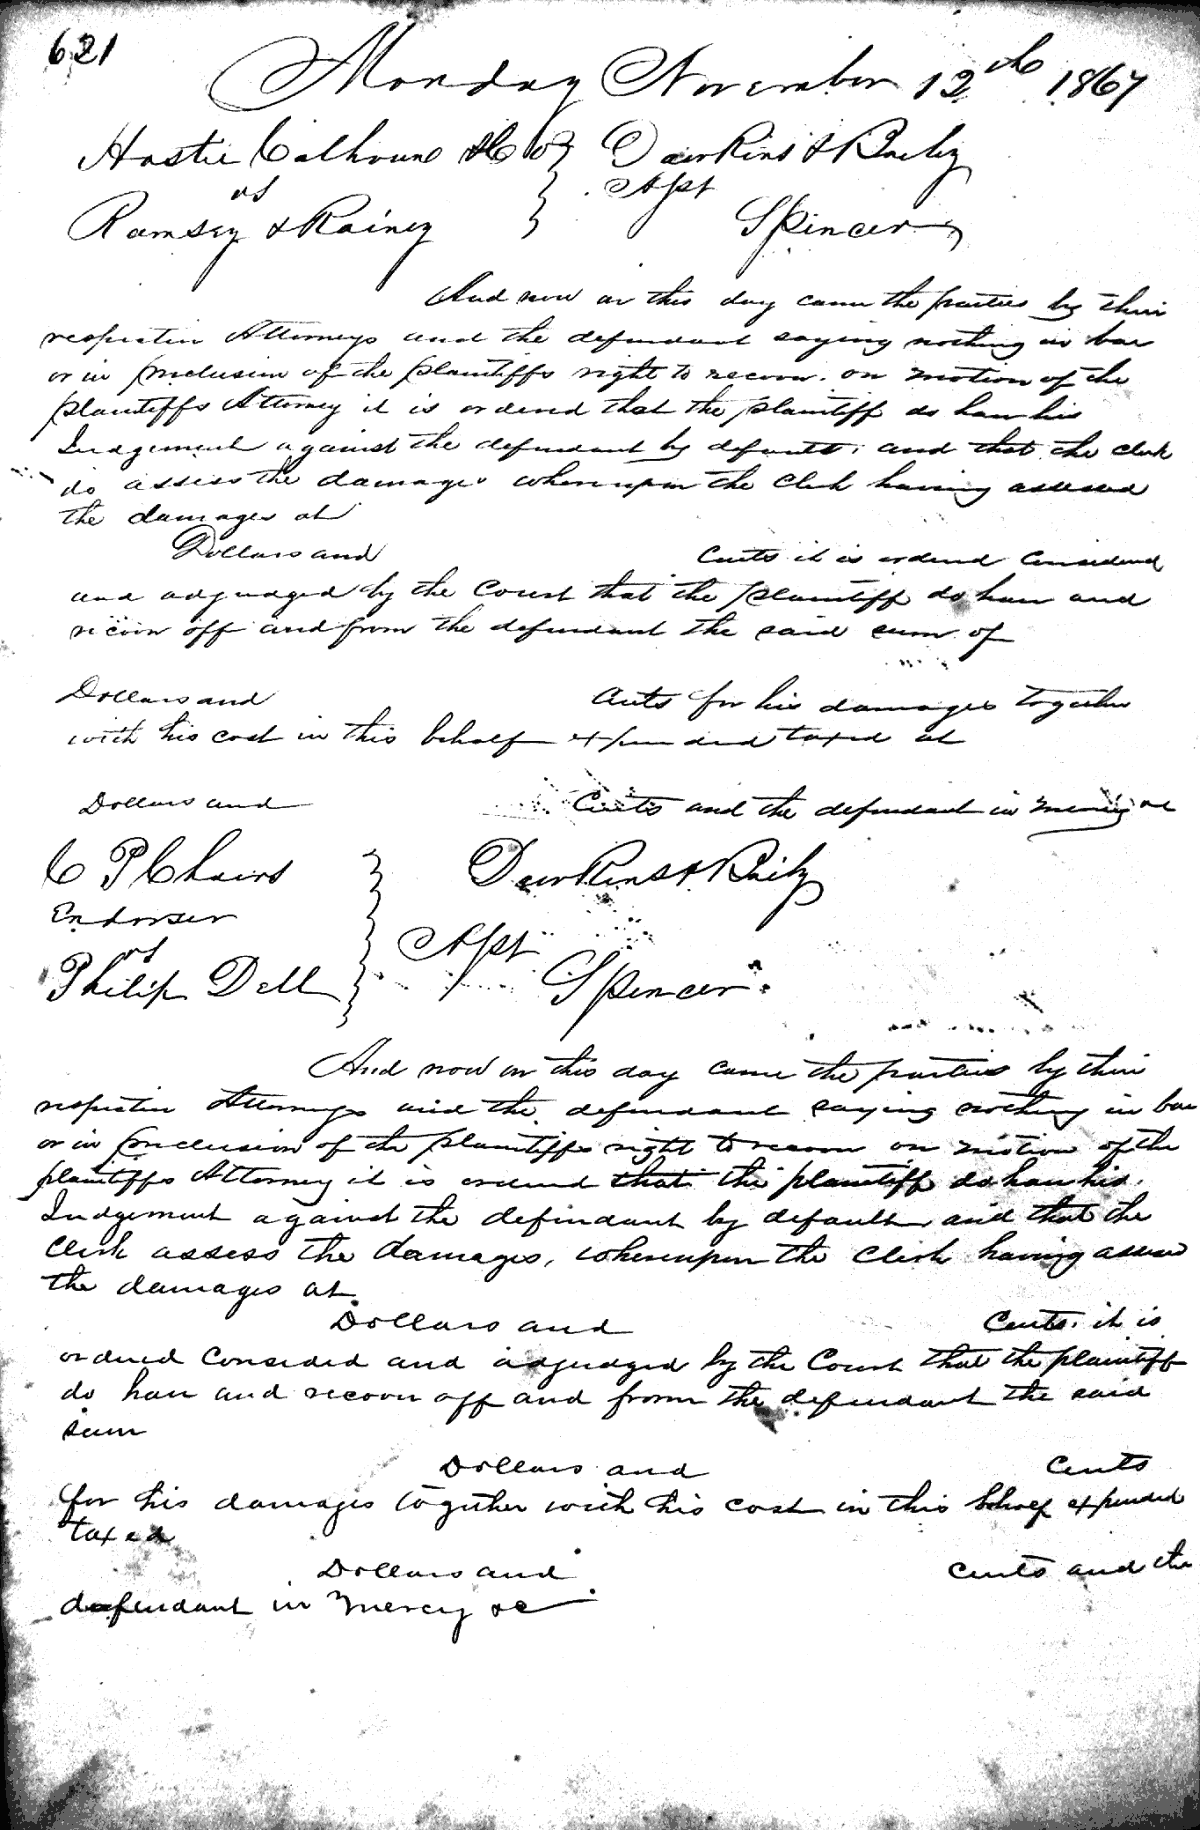 621
Monday November 12th 1867
Hastie Calhoune & Co } Dawkins & Baily
vs } Apt
Ramsey & Rainey } Spencer
And now on this day came the parties by their
respective Attorneys and the defendant saying nothing in bar
or in preclusion of the plaintiffs right to recover. on motion of the
plaintiffs Attorney it is ordered that the plaintiff do have his
Judgement against the defendant by default; and that the clerk
do assess the damages whereupon the Clerk having assessed
the damages at
Dollars and Cents it is ordered Considered
and adjudged by the Court that the plaintiff do have and
recover off and from the defendant the said sum of
Dollars and Cents for his damages together
with his cost in this behalf expended taxed at
Dollars and Cents and the defendant in mercy &c
C P Chairs } Dawkins & Baily
Endorser
vs } Apt
Philip Dell } Spencer
And now on this day came the parties by their
respective Attorneys and the defendant saying nothing in bar
or in preclusion of the plaintiffs right to recover on motion of the
plaintiffs Attorney it is ordered that the plaintiff do have his
Judgement against the defendant by default and that the
Clerk assess the damages, whereupon the Clerk having assessed
the damages at
Dollars and Cents. it is
ordered Consided and adjudged by the Court that the plaintiff
do have and recover off and from the defendant the said
sum
Dollars and Cents
for his damages together with his cost in this behalf expended
taxed
Dollars and Cents and the
defendant in mercy &c